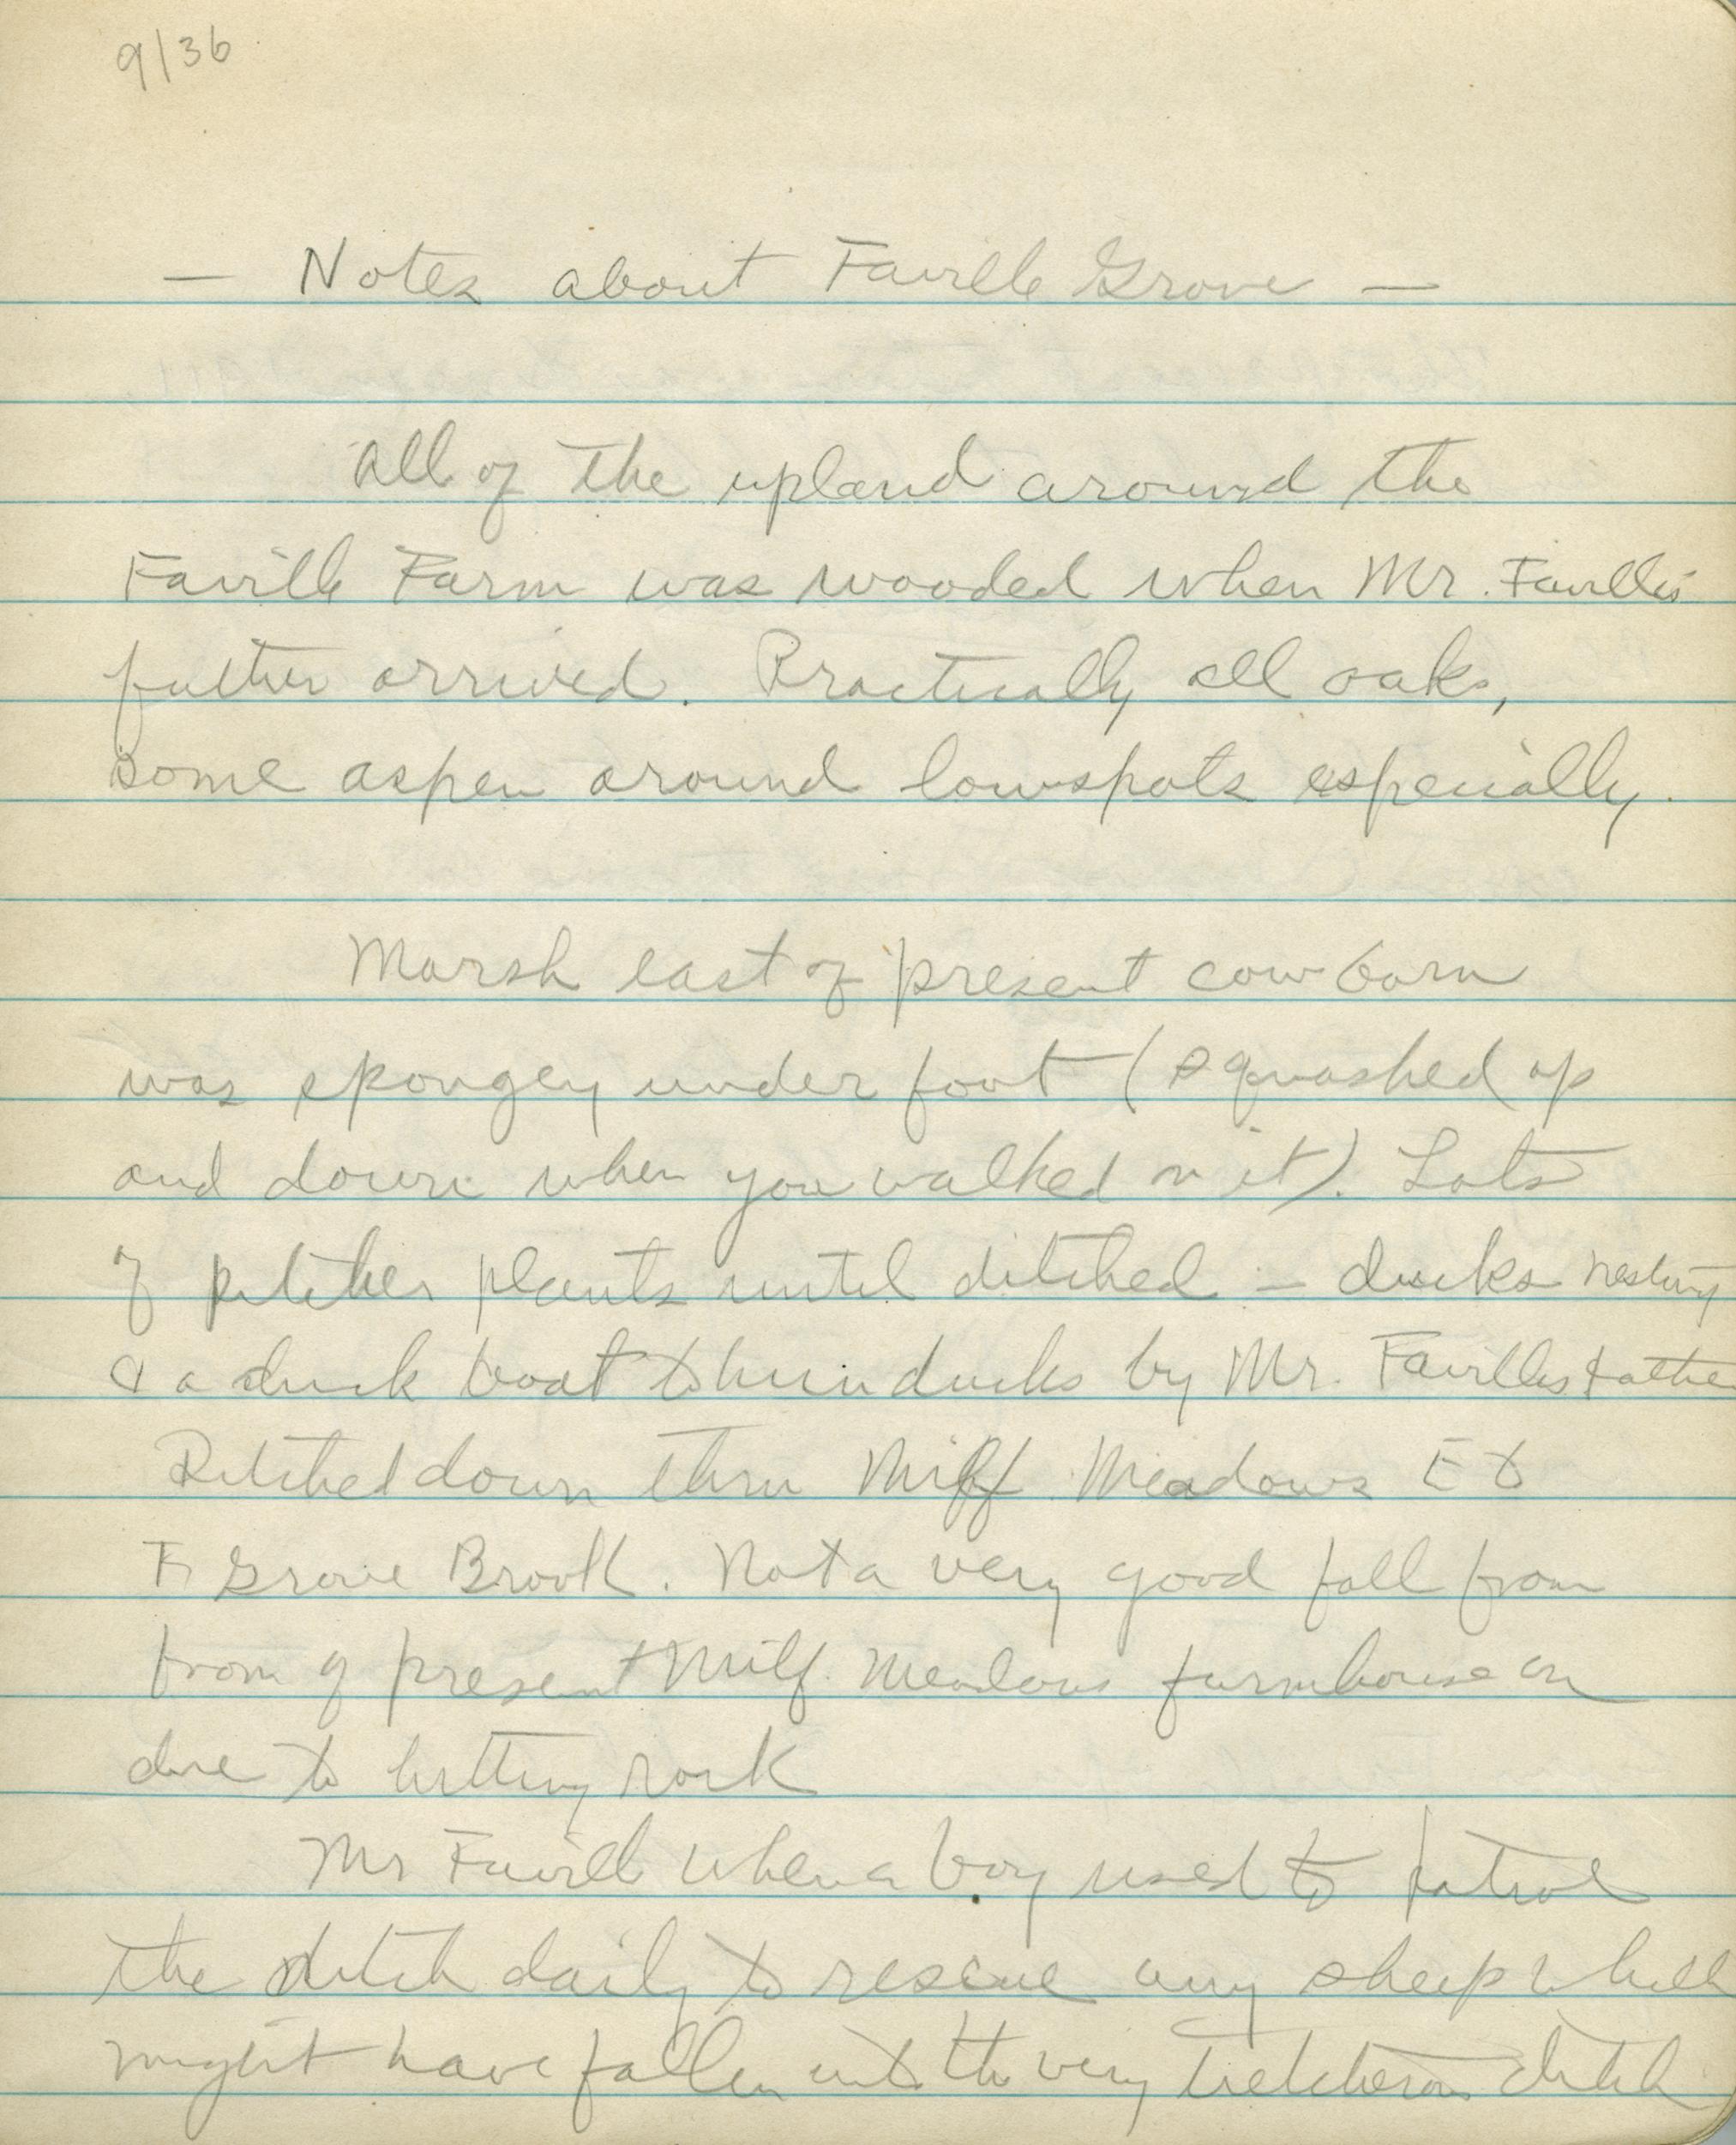 9/36
— Notes about Faville Grove —
All of the upland around the
Faville Farm was wooded when Mr. Faville's
father arrived. Practically all oaks,
some aspen around low spots especially.
Marsh east of present cow barn
was spongey under foot (squashed up
and down when you walked on it). Lots
of pitcher plants until ditched — ducks nesting
& a duck boat to hun ducks by Mr. Favilles father
Ditched down thru Milf. Meadows E to
F. Grove Brook. Not a very good fall from
from of present Milf. Meadows farmhouse on
due to hitting rock
Mr Faville when a boy used to patrol
the ditch daily to rescue any sheep which
might have fallen into the very tretcherous ditch